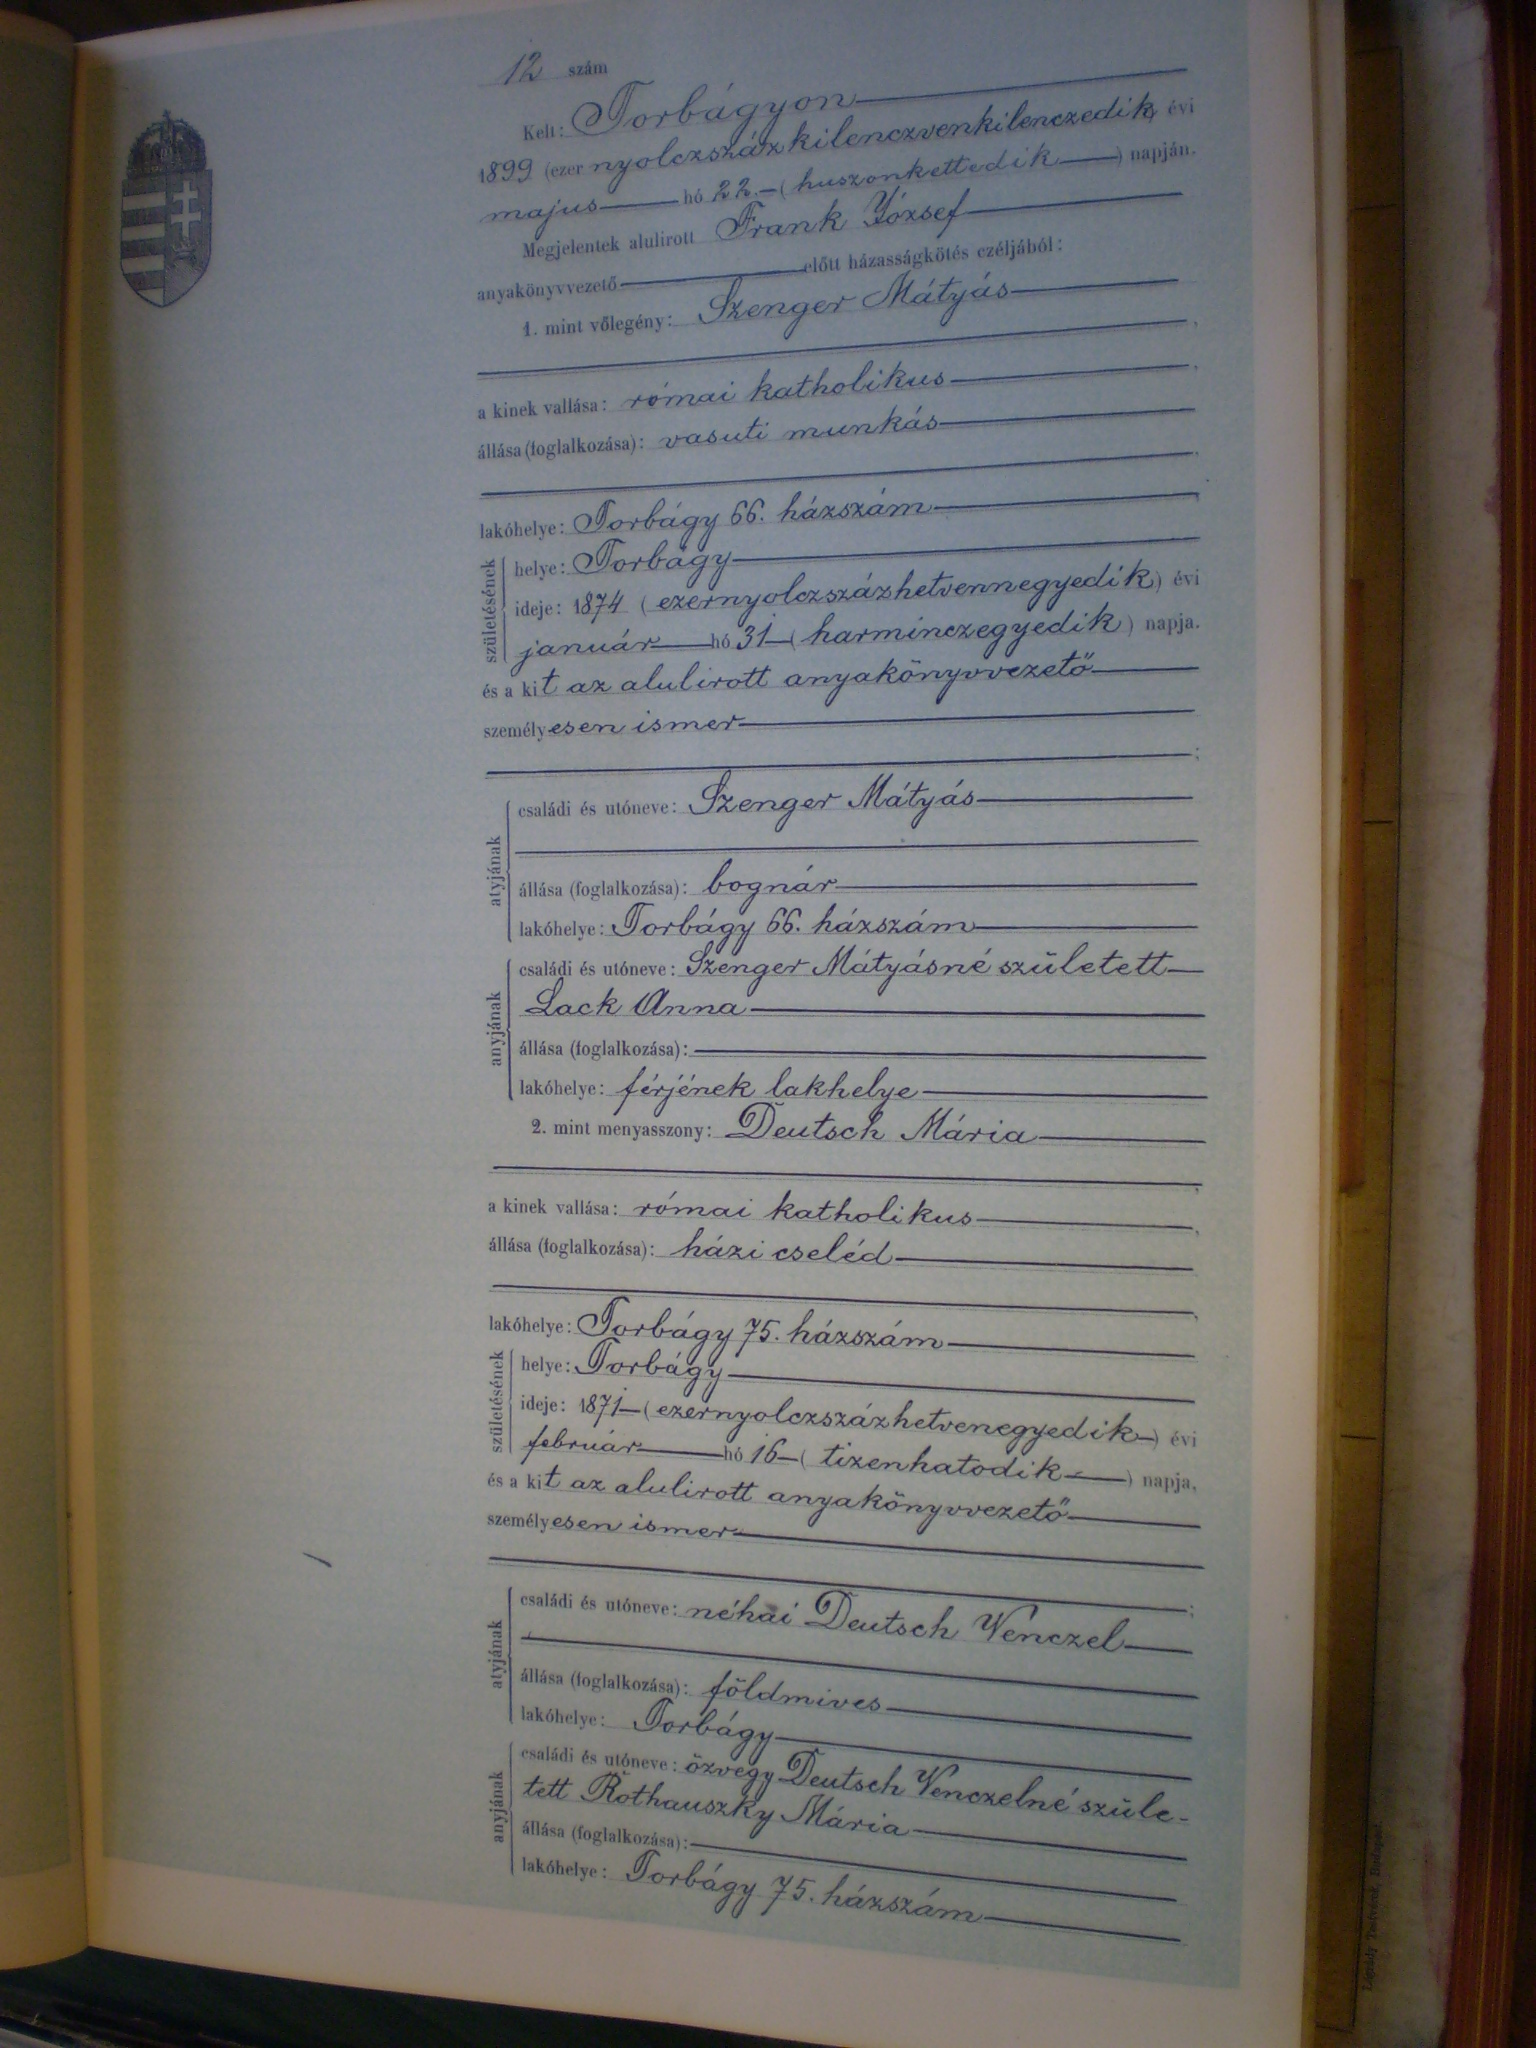 12 szám
Kelt: Torbágyon
1899 (ezer nyolczszáz kilenczvenkilenczedik évi
majus hó 22. (huszonkettedik) napján.
Megjelentek alulirott Frank József
anyakönyvvezető előtt házasságkötés czéljából:
1. mint vőlegény: Szenger Mátyás
a kinek vallása: római katholikus
állása (foglalkozása): vasuti munkás
lakóhelye: Torbágy 66. házszám
születésének
helye: Torbágy
ideje: 1874 (ezernyolczszázhetvennegyedik) évi
január hó 31 (harminczegyedik) napja.
és a kit az alulirott anyakönyvvezető
személyesen ismer
;
atyjának
családi és utóneve: Szenger Mátyás
állása (foglalkozása): bognár
lakóhelye: Torbágy 66. házszám
anyjának
családi és utóneve: Szenger Mátyásné született
Lack Anna
állása (foglalkozása):
lakóhelye: férjének lakhelye
2. mint menyasszony: Deutsch Mária
a kinek vallása: római katholikus
állása (foglalkozása): házi cseléd
lakóhelye: Torbágy 75. házszám
születésének
helye: Torbágy
ideje: 1871 (ezernyolczszázhetvenegyedik) évi
február hó 16 (tizenhatodik) napja,
és a kit az alulirott anyakönyvvezető
személyesen ismer
;
atyjának
családi és utóneve: néhai Deutsch Venczel
állása (foglalkozása): földmives
lakóhelye: Torbágy
anyjának
családi és utóneve: özvegy Deutsch Venczelné szüle-
tett Rothauszky Mária
állása (foglalkozása):
lakóhelye: Torbágy 75. házszám